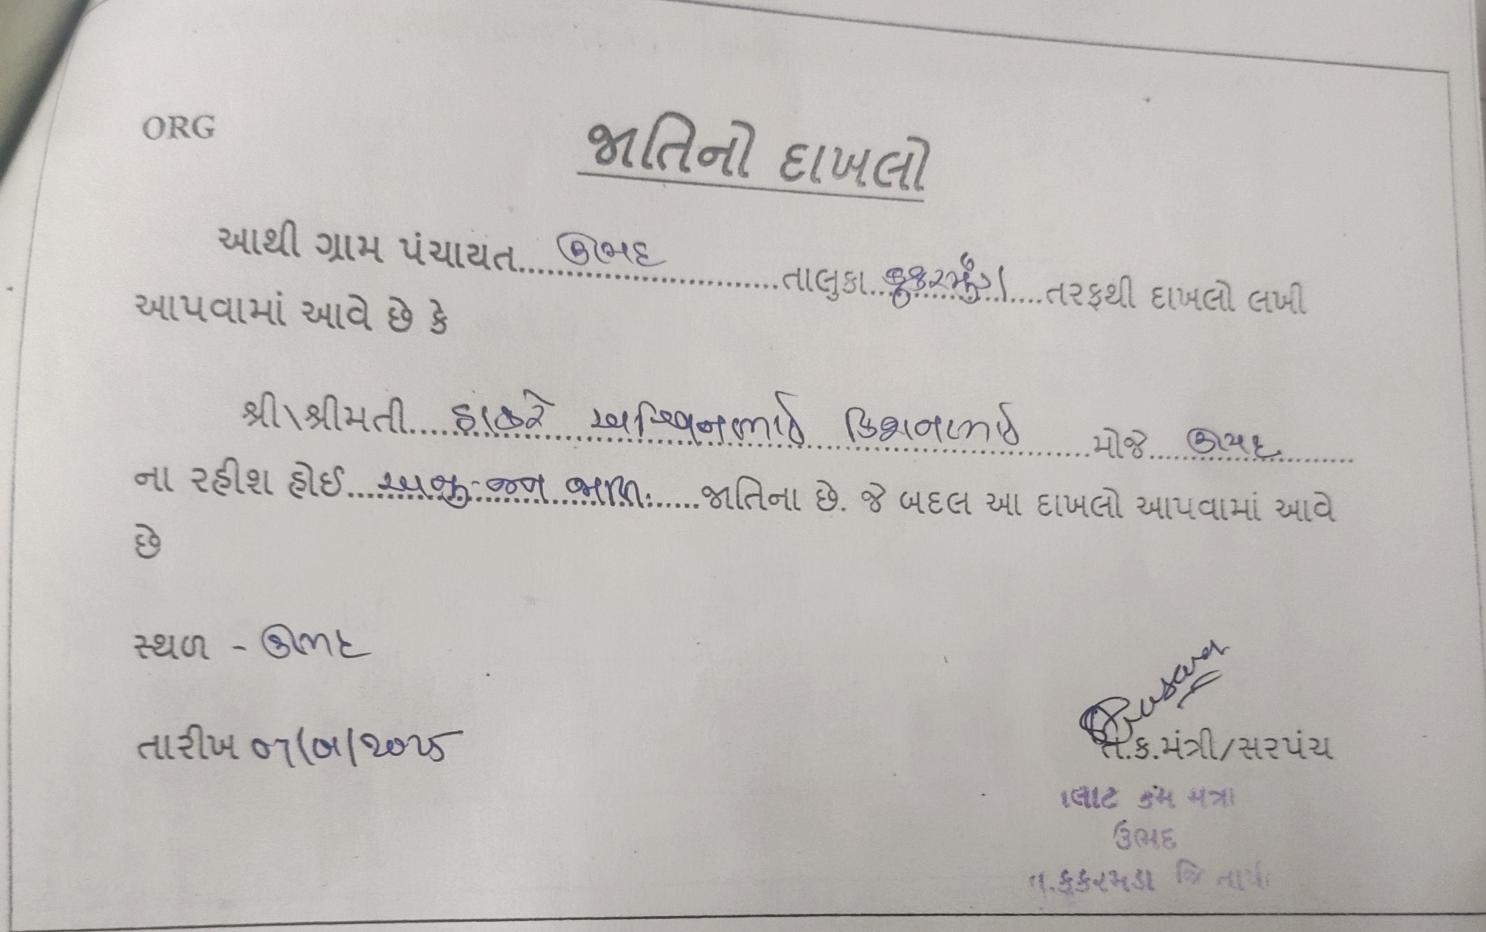 ORG
જાતિનો દાખલો
આથી ગ્રામ પંચાયત.....ઉભદ.....તાલુકા..કુકરમુંડા....તરફથી દાખલો લખી
આપવામાં આવે છે કે
શ્રી\શ્રીમતી....ઠાકરે અશ્વિનભાઈ કિશનભાઈ.....મોજે...ઉભદ.....
ના રહીશ હોઈ...અનુ-જન જાતિ.....જાતિના છે. જે બદલ આ દાખલો આપવામાં આવે
છે
સ્થળ - ઉભદ
તારીખ ૦૧/૦૫/૨૦૨૫
ત.ક.મંત્રી/સરપંચ
ઉભદ